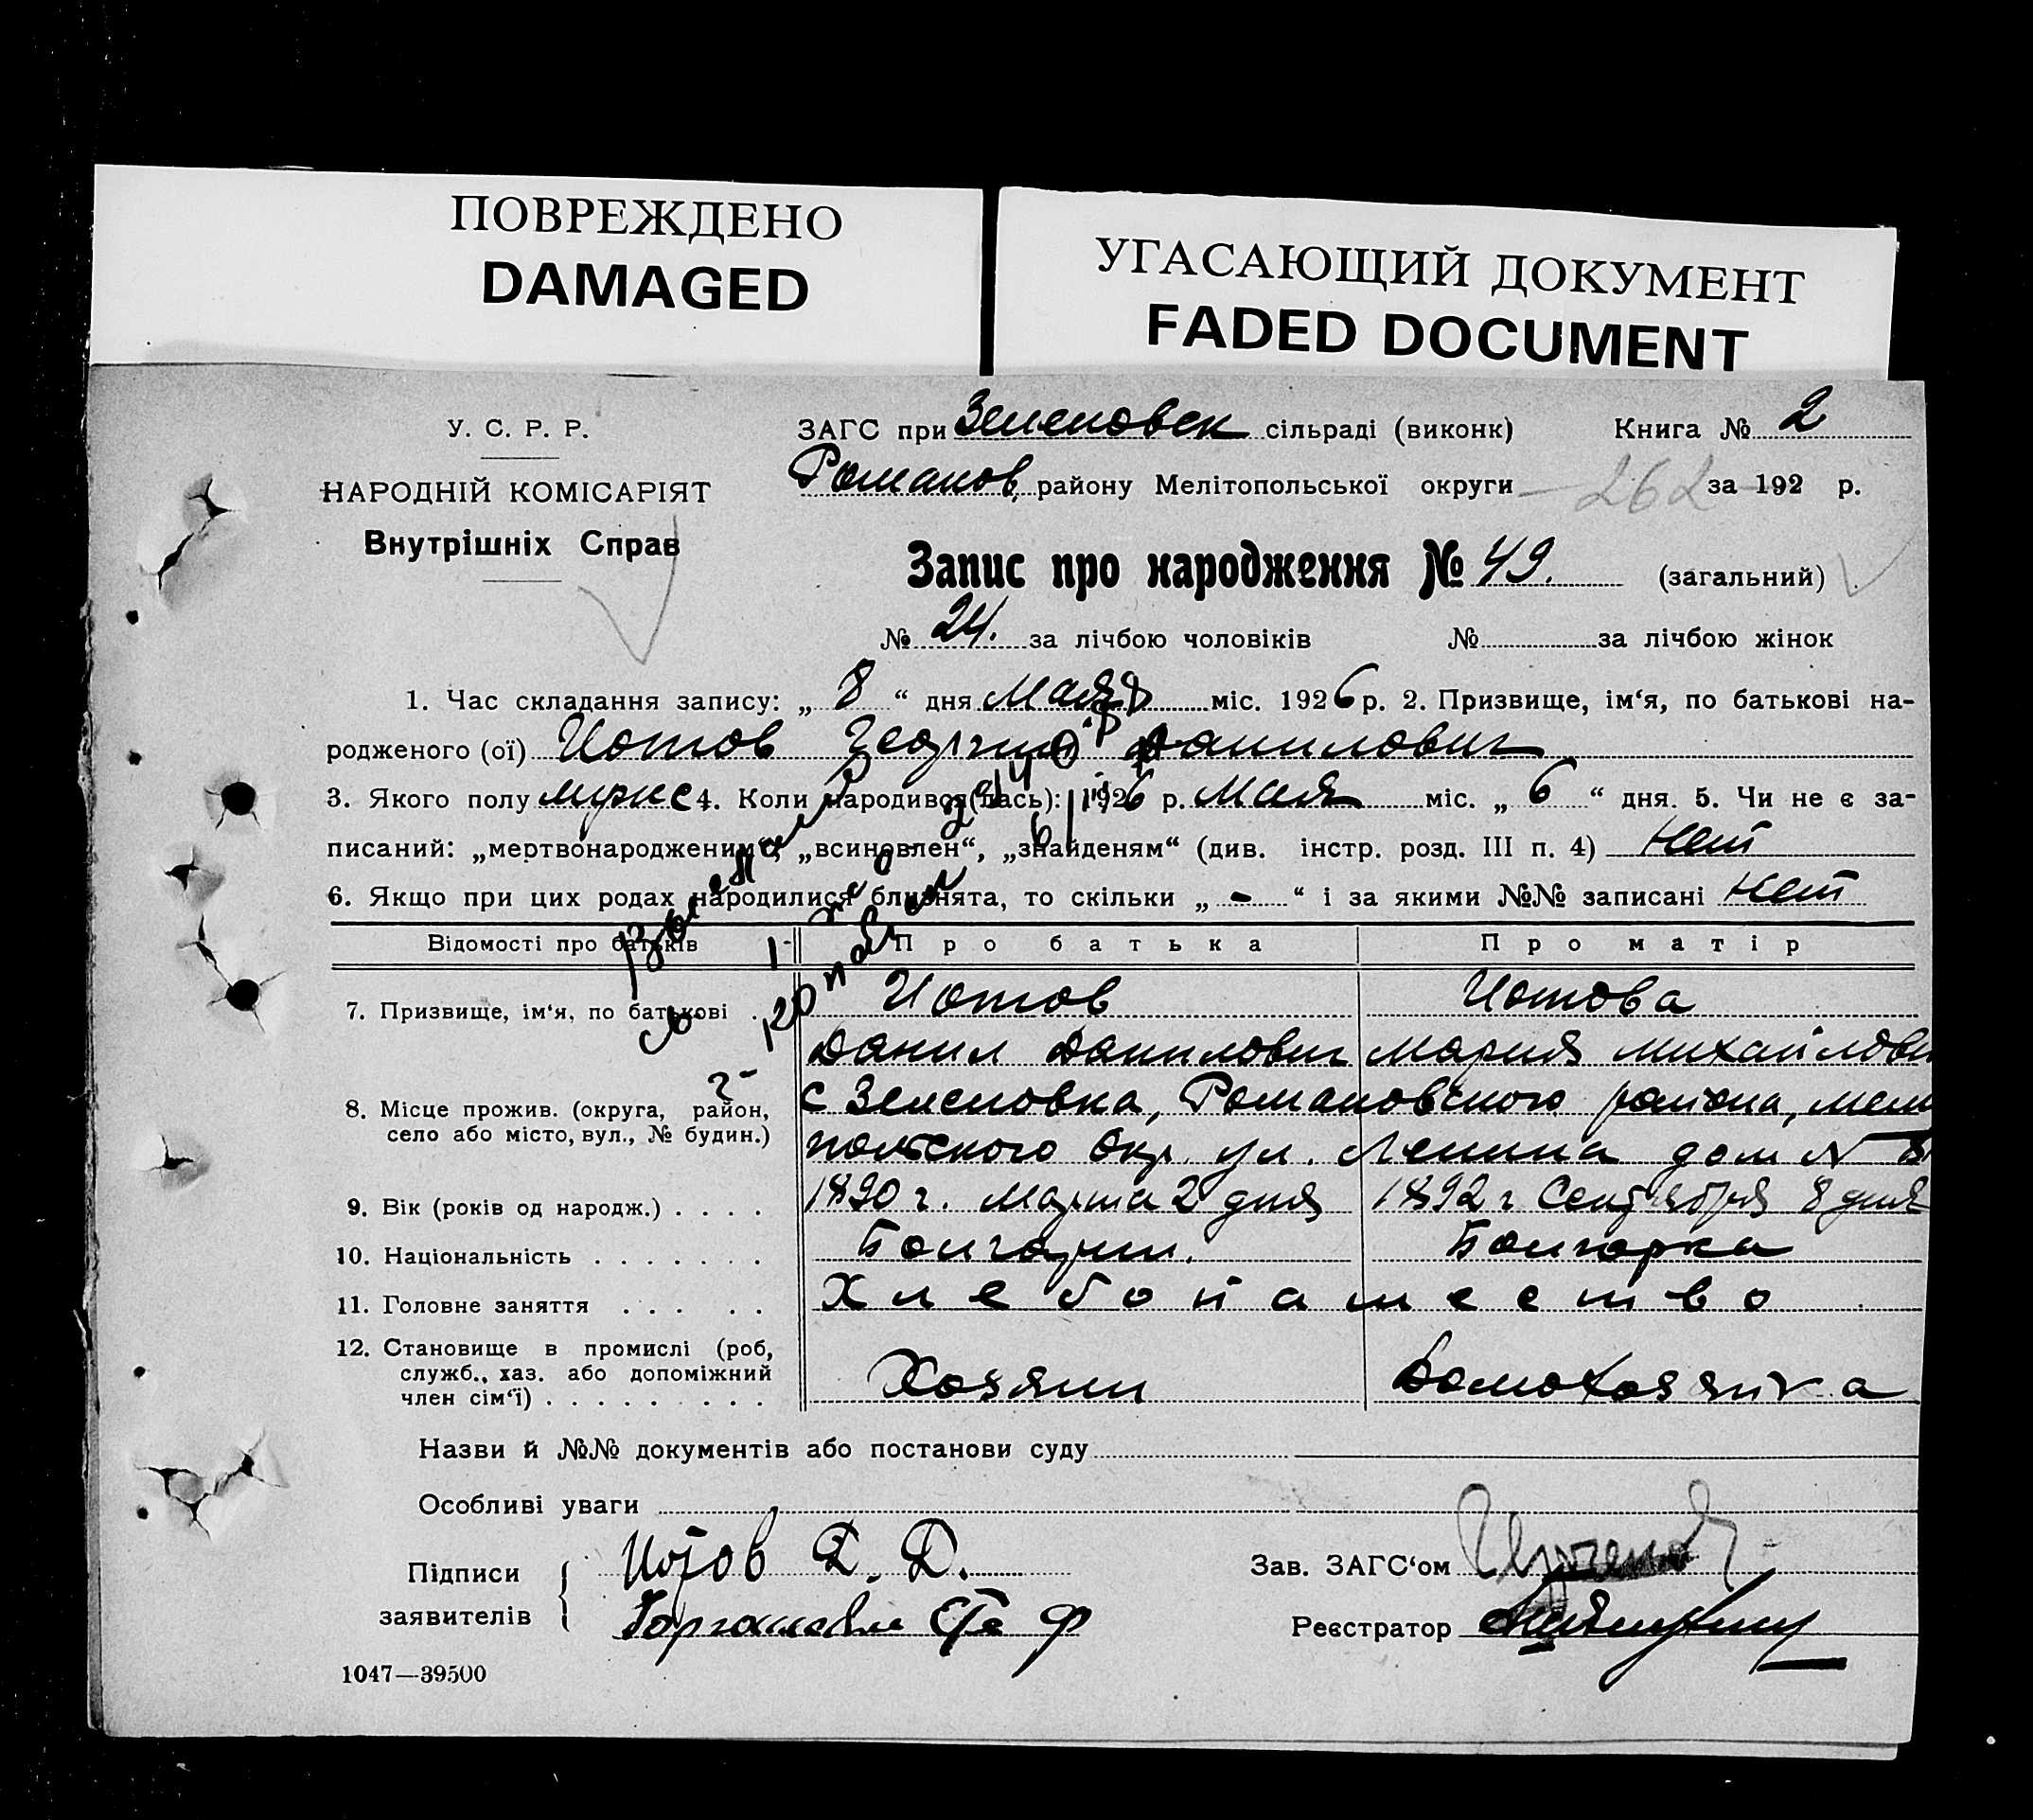 ПОВРЕЖДЕНО
DAMAGED
УГАСАЮЩИЙ ДОКУМЕНТ
FADED DOCUMENT
У. С. Р. Р.
НАРОДНІЙ КОМІСАРІЯТ
Внутрішніх Справ
ЗАГС при Зеленовск сільраді (виконк) Книга № 2
Романов. району Мелітопольської округи - 262 за 192 р.
Запис про народження № 49. (загальний)
№ 24. за лічбою чоловіків № за лічбою жінок
1. Час складання запису: „ 8 “ дня Мая міс. 1926 р. 2. Призвище, ім‘я, по батькові на-
родженого (ої) Иотов Георгий Данилович
3. Якого полу мужс 4. Коли народився (лась): 1926 р. Мая міс. „ 6 “ дня. 5. Чи не є за-
писаний: „мертвонародженим“, „всиновлен“, „знайденям“ (див. інстр. розд. III п. 4) Нет
6. Якщо при цих родах народилися близнята, то скільки „ - “ і за якими №№ записані Нет
Відомості про батьків Про батька Про матір
7. Призвище, ім‘я, по батькові . Иотов Иотова
Данил Данилович Мария Михайлови
8. Місце прожив. (округа, район, с Зеленовка, Романовского района, мели
село або місто, вул., № будин.) польского Окр. ул. Ленина дом N
9. Вік (років од народж.) . . . . 1890 г. Марта 2 дня 1892 г Сентября 8 дня
10. Національність . . . . . . . Болгарин. Болгарка
11. Головне заняття . . . . . Хлебопашество
12. Становище в промислі (роб,
служб., хаз. або допоміжний Хозяин Домохозяйка
член сім‘ї) . . . . . . . . .
Назви й №№ документів або постанови суду
Особливі уваги
Підписи Иотов Д. Д. Зав. ЗАГС‘ом
заявителів Реєстратор
1047—39500